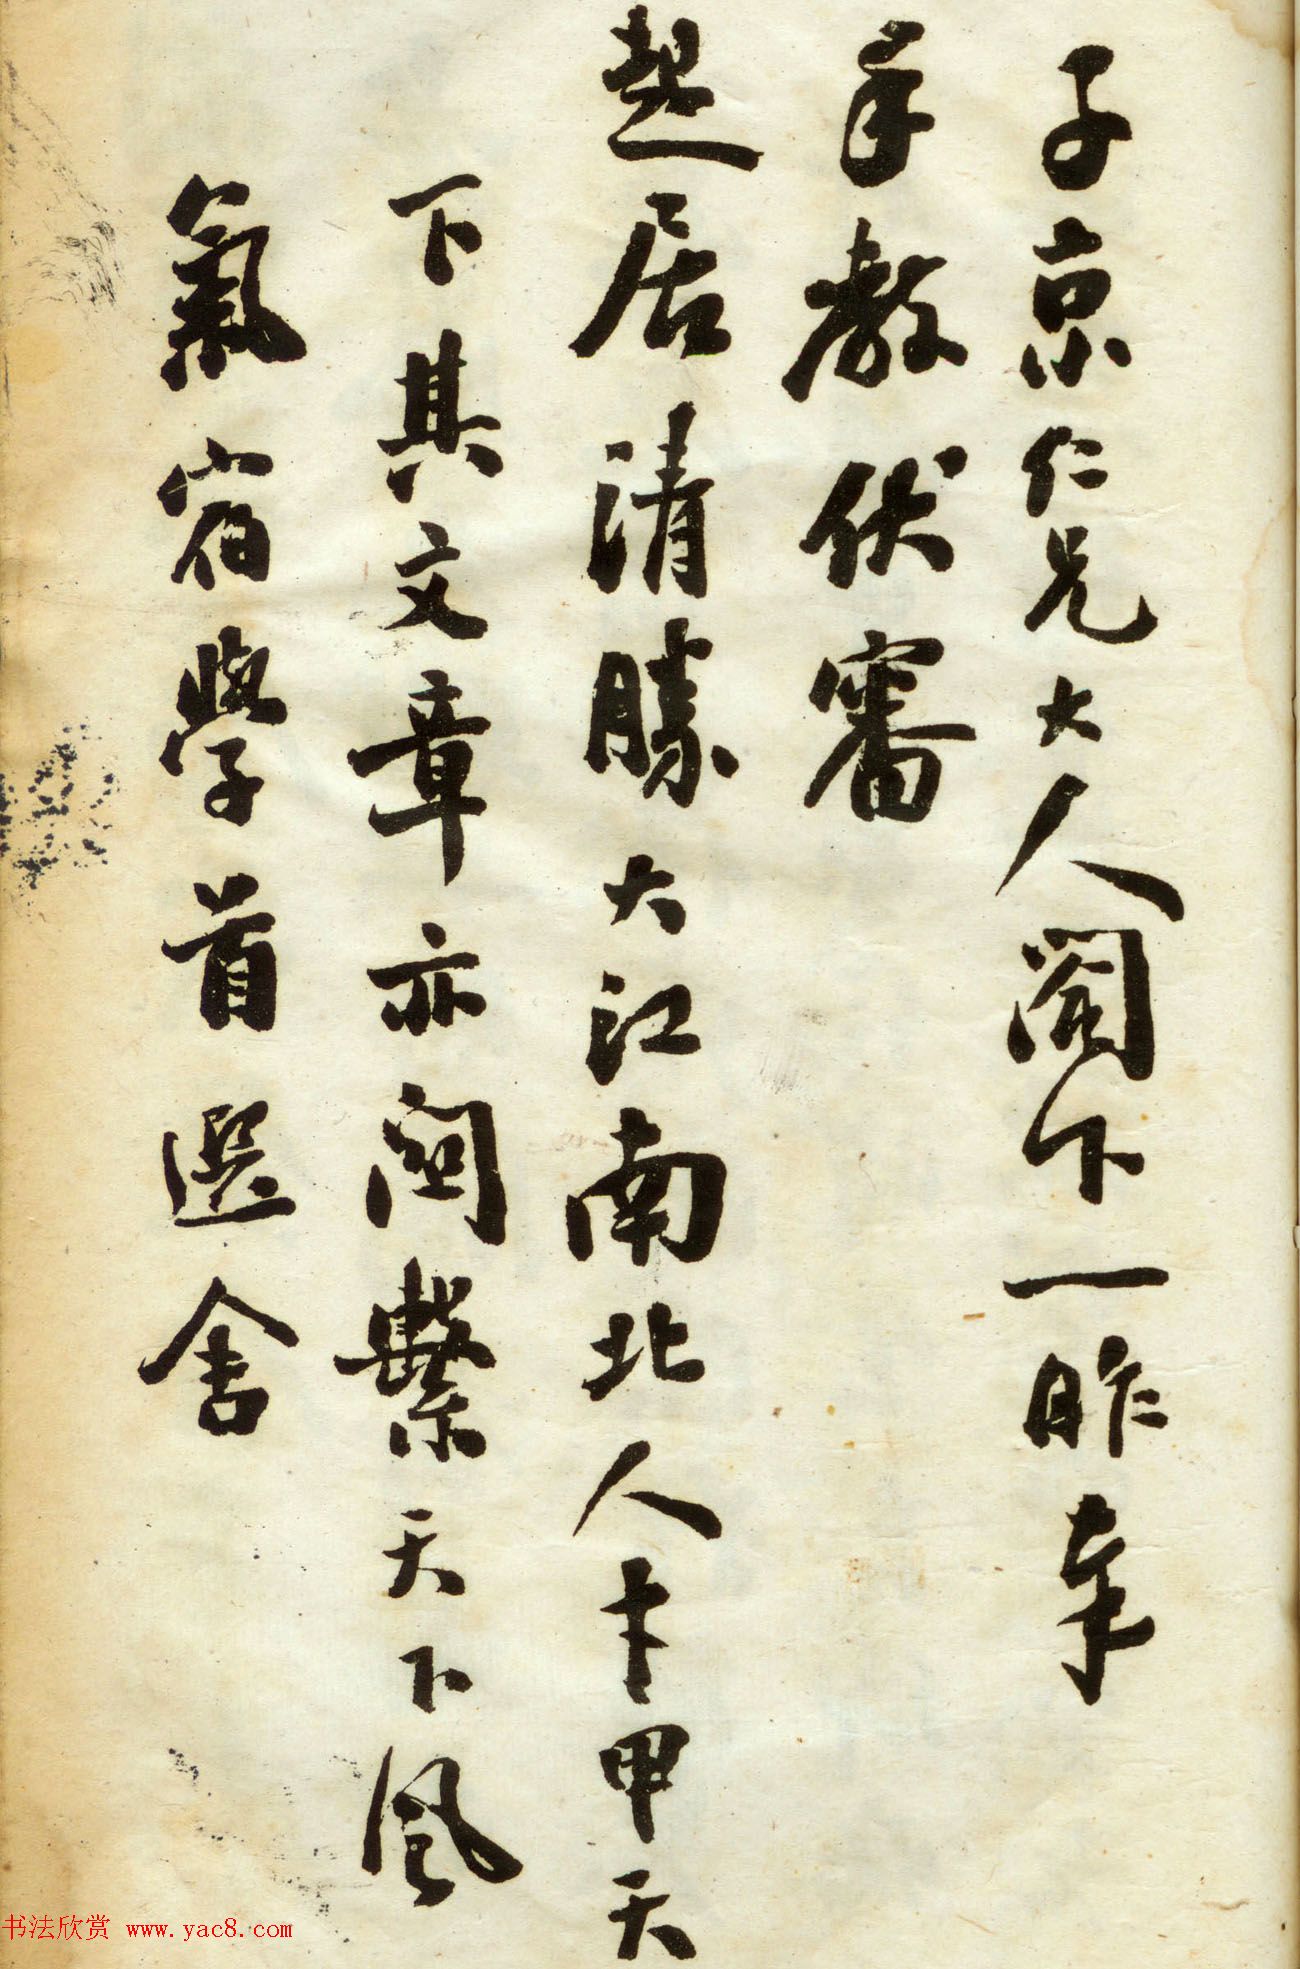 子京仁兄大人閣下一昨奉
手教伏審
起居清勝大江南北人才甲天
下其文章亦関繫天下風
氣宿學首選舍
书法欣赏 www.yac8.com